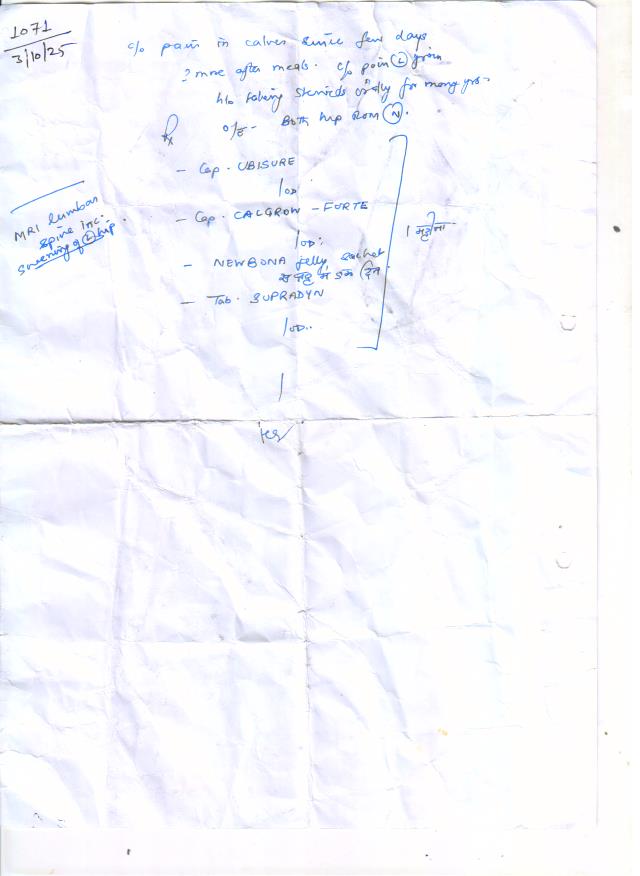 1071
3/10/25
c/o pain in calves since few days
? more after meals. c/o pain Ⓛ groin
h/o taking steroids orally for many yrs
Rx o/e - Both hip ROM Ⓝ.
- Cap. UBISURE
1 OD
MRI lumbar
spine inc.
screening of Ⓛ hip
- Cap. CALGROW - FORTE
1 OD.
1 महीना
- NEWBONA jelly sachet
में एक दिन
- Tab. SUPRADYN
1 OD..